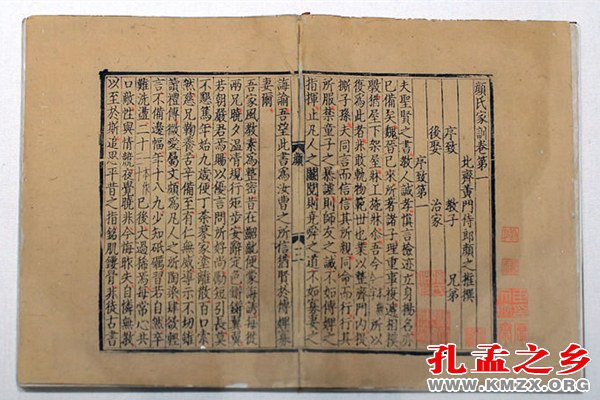 顏氏家訓卷第一
北齊黃門侍郎顏之推撰
序致 教子 兄弟
後娶 治家
序致第一
夫聖賢之書教人誠孝慎言檢迹立身揚名亦
已備矣魏晉已來所著諸子理重事複遞相模
斆猶屋下架屋牀上施牀爾吾今所以
復為此者非敢軌物範世也業以整齊門內提
撕子孫夫同言而信信其所親同命而行行其
所服禁童子之暴謔則師友之誡不如傅婢之
指揮止凡人之鬬鬩則堯舜之道不如寡妻之
顏一
二
誨諭吾望此書為汝曹之所信猶賢於傅婢寡
妻爾
吾家風教素為整密昔在齠齔便蒙誨誘每從
兩兄曉夕溫凊規行矩步安辭定色鏘鏘翼翼
若朝嚴君焉賜以優言問所好尚勵短引長莫
不懇篤年始九歲便丁荼蓼家塗離散百口索
然慈兄鞠養苦辛備至有仁無威導示不切雖
讀禮傳微愛屬文頗為凡人之所陶染肆欲輕
言不備邊幅年十八九少知砥礪習若自然卒
難洗盪二十已後大過稀焉每常心共
口敵性與情競夜覺曉非今悔昨失自憐無教
以至於斯追思平昔之指銘肌鏤骨非徒古書
孔孟之乡
WWW.KMZX.ORG